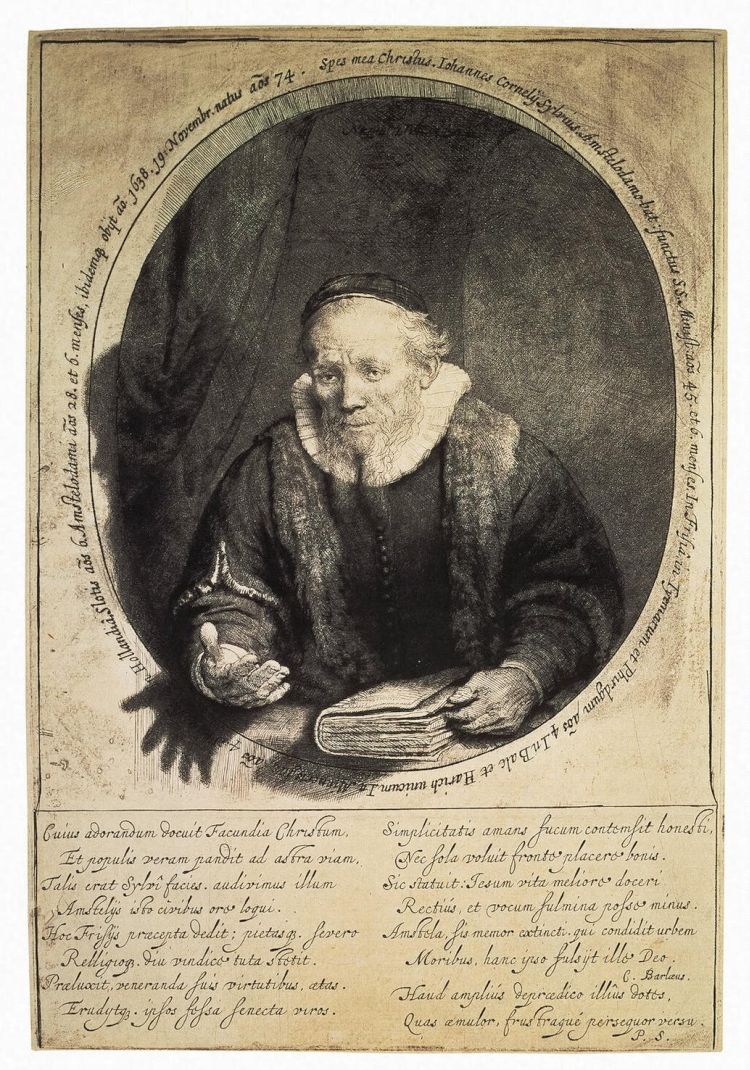 Spes mea Christus. Iohannes Cornelÿ Sylvius, Amstelodamo-bat: functus S.S. Minist: aōs 45. et 6. menses. In Frisia in Tyemarum et Phirdgum aōs 4. In Balc et Harich unicum. In aōs 4. In Hollandia, Slotis aōs 6. Amstelodami aōs 28. et 6. menses, ibidemq obijt aō. 1638. 19. Novembr. natus aōs 74.
Cuius adorandum docuit Facundia Christum,
Et populis veram pandit ad astra viam,
Talis erat Sylvî facies. audivimus illum
Amstelijs isto civibus ore loqui.
Hoc Frisijs præcepta dedit; pietasq. severo
Relligioq. diu vindice tuta stetit.
Præluxit, veneranda suis virtutibus, ætas.
Erudytq. ipsos fessa senecta viros.
Simplicitatis amans fucum contemsit honesti,
Nec sola voluit fronte placere bonis.
Sic statuit: Iesum vita meliore doceri
Rectiùs, et vocum fulmina posse minus.
Amstela, sis memor extincti. qui condidit urbem
Moribus, hanc ipso fulsijt ille Deo.
C. Barlæus.
Haud ampliùs deprædico illius dotes,
Quas æmulor, frustraque persequor versu.
P. S.